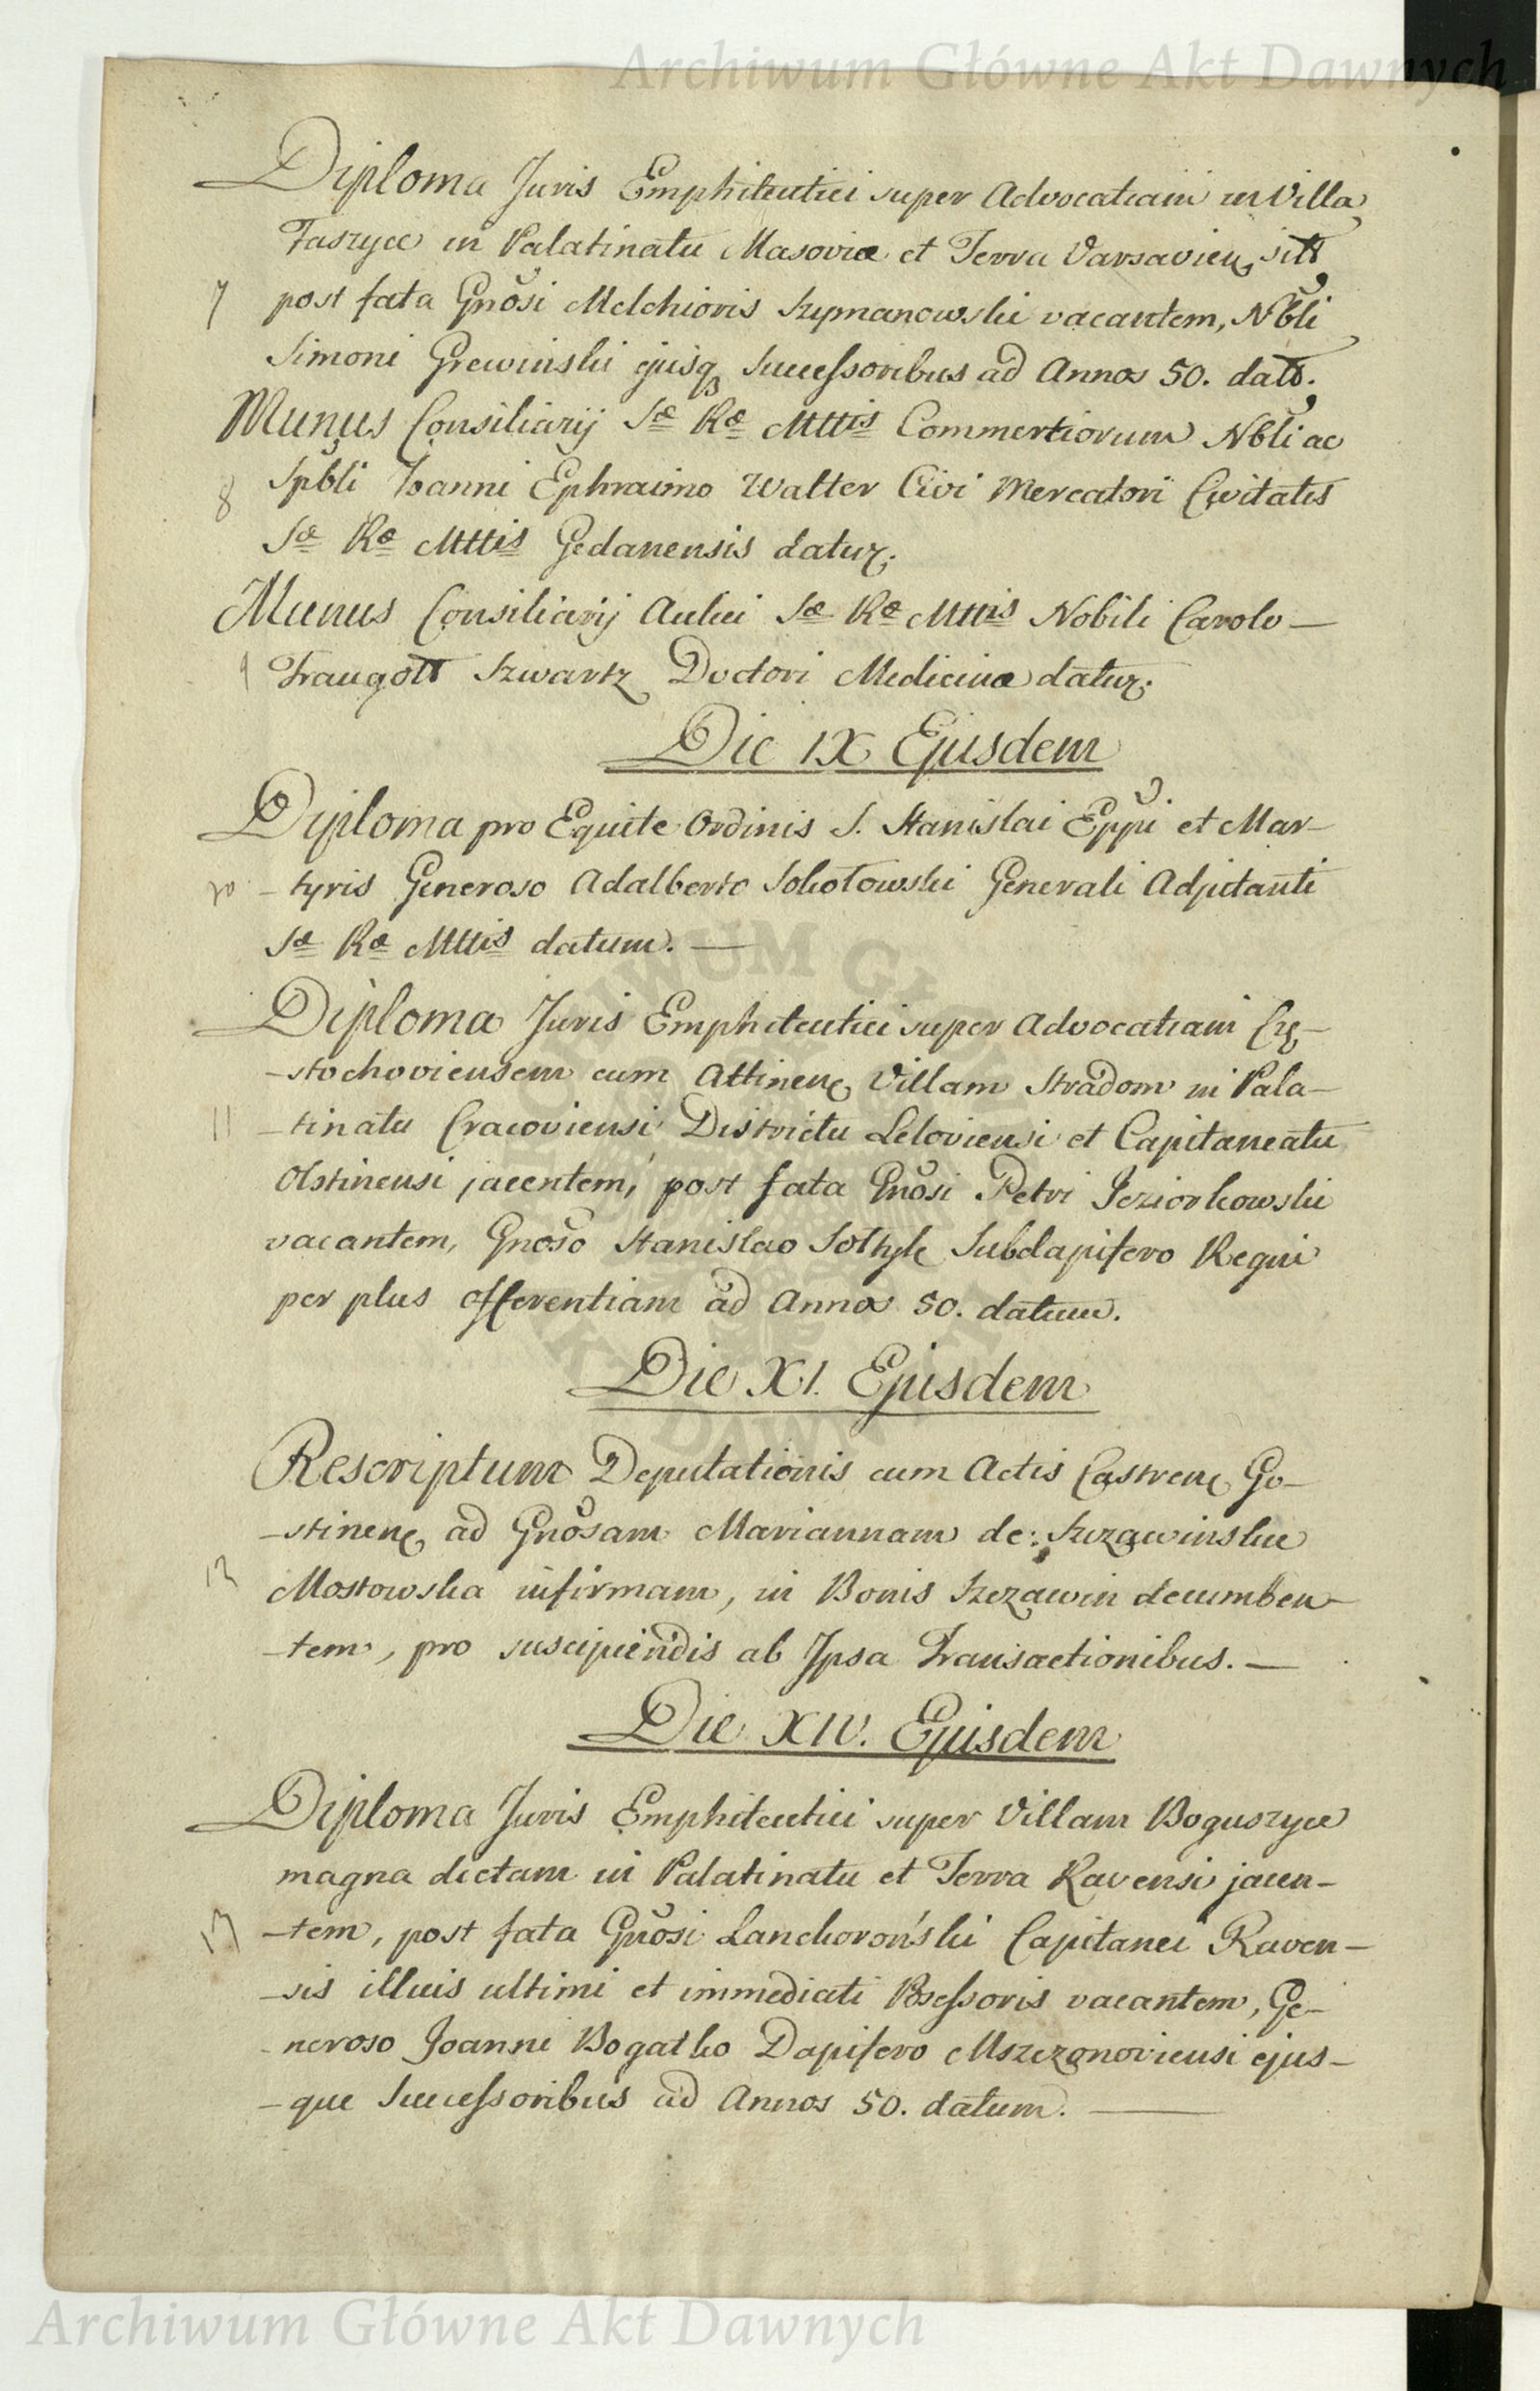 Archiwum Główne Akt Dawnych
Diploma Juris Emphiteutici super Advocatiam in Villa
Faszyce in Palatinatu Masoviæ et Terra Varsavien sitt
7 post fata Gnŏsi Melchioris Szymanowski vacantem, Nb̆li
Simoni Grewinski ejusq Successoribus ad Annos 50. datt.
Munus Consiliarij Sæ Ræ Mttis Commertiorum Nb̆li ac
8 Spb̆li Ioanni Ephraimo Walter Civi Mercatori Civitatis
Sæ Ræ Mttis Gedanensis datur.
Munus Consiliarij Aulici Sæ Ræ Mttis Nobili Carolo —
9 Traugott Szwartz Doctori Medicinæ datur.
Die IX Ejusdem
Diploma pro Equite Ordinis S. Stanislai Ep̆pi et Mar–
10 –tyris Generoso Adalberto Sokołowski Generali Adjutanti
Sæ Ræ Mttis datum. —
Diploma Juris Emphiteutici super Advocatiam Czę–
–stochoviensem cum Attinen Villam Stradom in Pala–
11 –tinatu Cracoviensi Districtu Leloviensi et Capitaneatu
Olstinensi jacentem, post fata Gnŏsi Petri Jeziorkowski
vacantem, Gnŏso Stanislao Sołtyk Subdapifero Regni
per plus offerentiam ad Annos 50. datum.
Die XI. Ejusdem
Rescriptum Deputationis cum Actis Castren Go–
–stinen ad Gnŏsam Mariannam de: Szczawinskie
12 Mostowska infirmam, in Bonis Szczawin decumben–
–tem, pro suscipiendis ab Ipsa Transactionibus. —
Die XIV. Ejusdem
Diploma Juris Emphiteutici super Villam Boguszyce
magna dictam in Palatinatu et Terra Ravensi jacen–
13 –tem, post fata Gnŏsi Lanckoroński Capitanei Raven–
–sis illius ultimi et immediati Possessoris vacantem, Ge–
–neroso Joanni Bogatko Dapifero Mszczonoviensi ejus–
–que Successoribus ad Annos 50. datum. —
Archiwum Główne Akt Dawnych